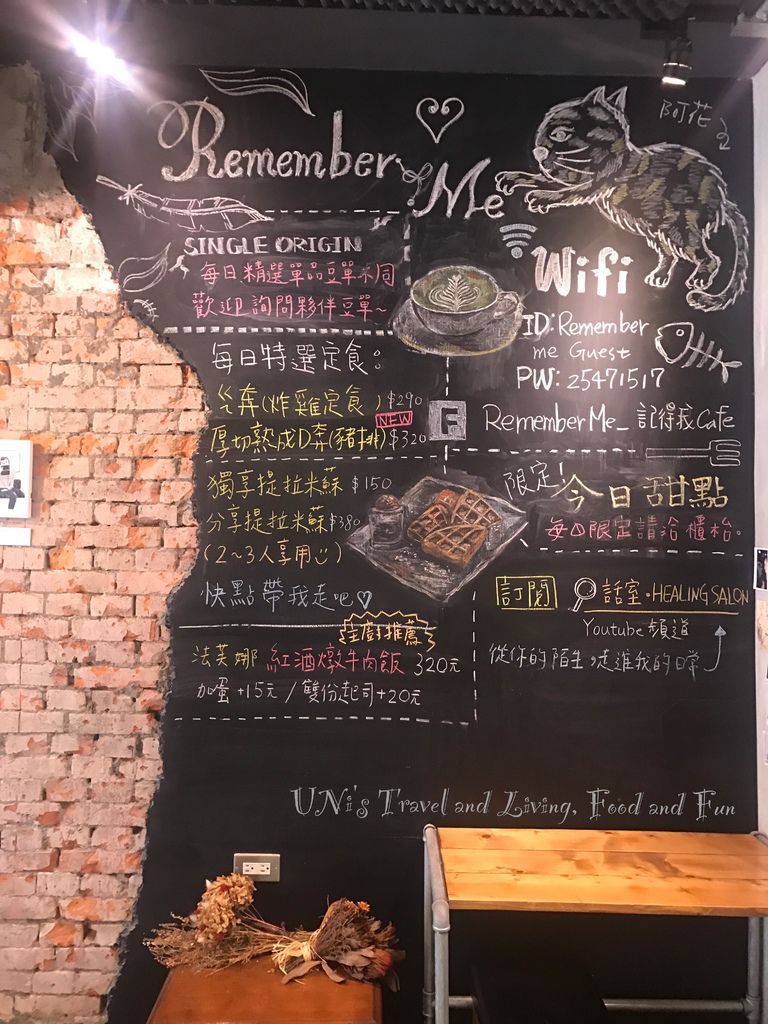 Remember Me
阿花
SINGLE ORIGIN
每日精選單品豆單不同
歡迎詢問夥伴豆單~
Wifi
ID: Remember
me Guest
PW: 25471517
RememberMe_ 記得我Cafe
每日特選定食:
ㄍ奔(炸雞定食) $290
NEW
厚切熟成D奔(豬排) $320
獨享提拉米蘇 $150
分享提拉米蘇 $380
(2~3人享用)
快點帶我走吧♡
限定!
今日甜點
每日限定請洽櫃枱。
訂閱 話室·HEALING SALON
Youtube頻道
從你的陌生,走進我的日常
主廚推薦
法芙娜 紅酒燉牛肉飯 320元
加蛋+15元/雙份起司+20元
UNi's Travel and Living, Food and Fun